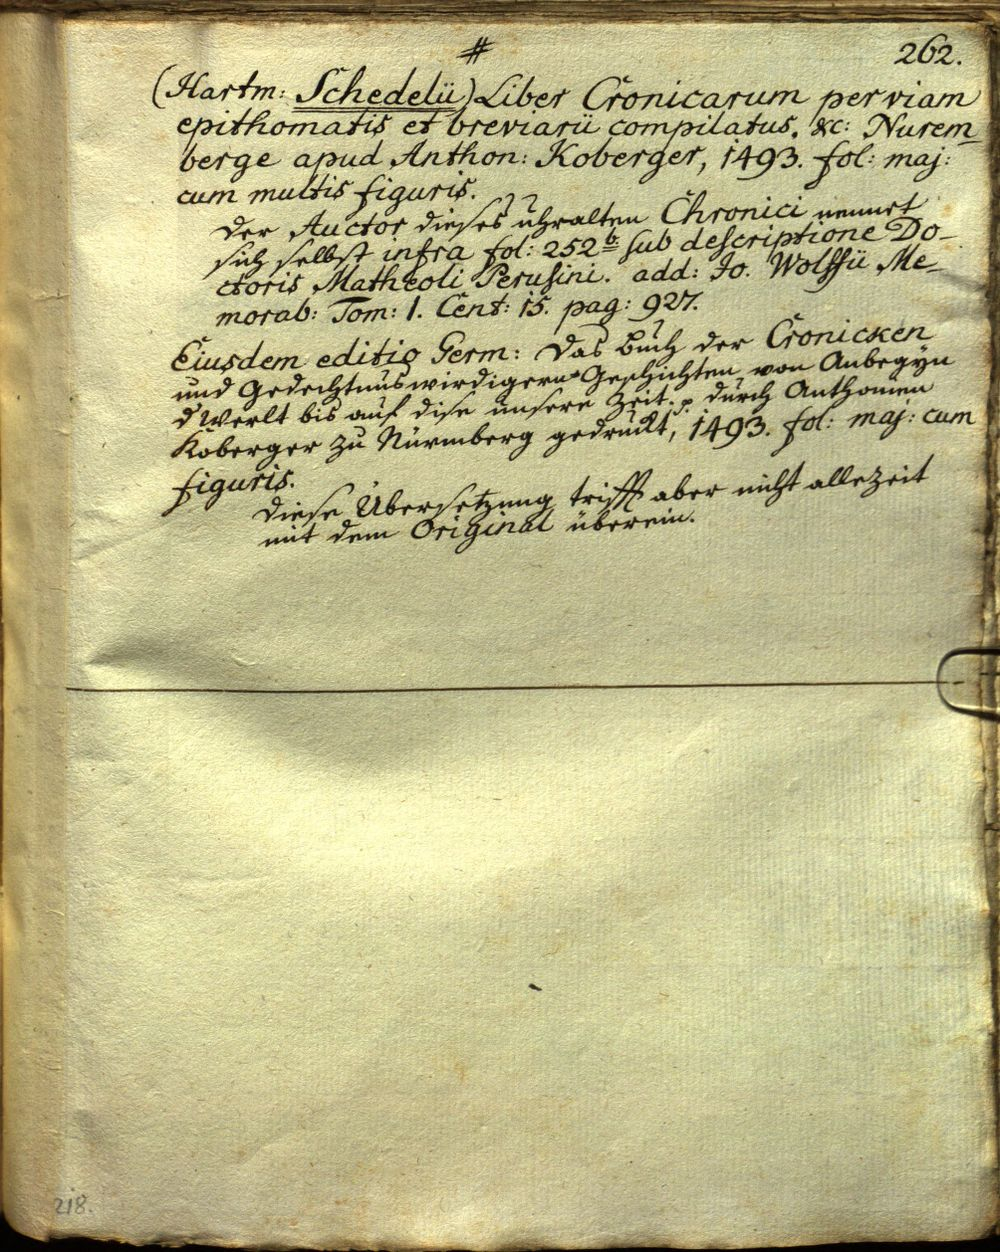 #
262.
(Hartm: Schedelii) Liber Cronicarum per viam
epithomatis et breviarii compilatus. &c: Nurem-
berge apud Anthon: Koberger, 1493. fol: maj:
cum multis figuris.
Der Auctor dieses uhralten Chronici nennet
sich selbst infra fol: 252b. sub descriptione Do-
ctoris Matheoli Perusini. add: Jo. Wolffii Me-
morab: Tom: 1. Cent: 15. pag: 927.
Eiusdem editio Germ: Das Buch der Cronicken
und Gedechtnuswirdigern Geschichten von Anbegyn
d Werlt bis auf dise unsere Zeit. p durch Anthonien
Koberger zu Nürmberg gedruckt, 1493. fol: maj: cum
figuris.
Diese Übersetzung trifft aber nicht allezeit
mit dem Original überein.
218.